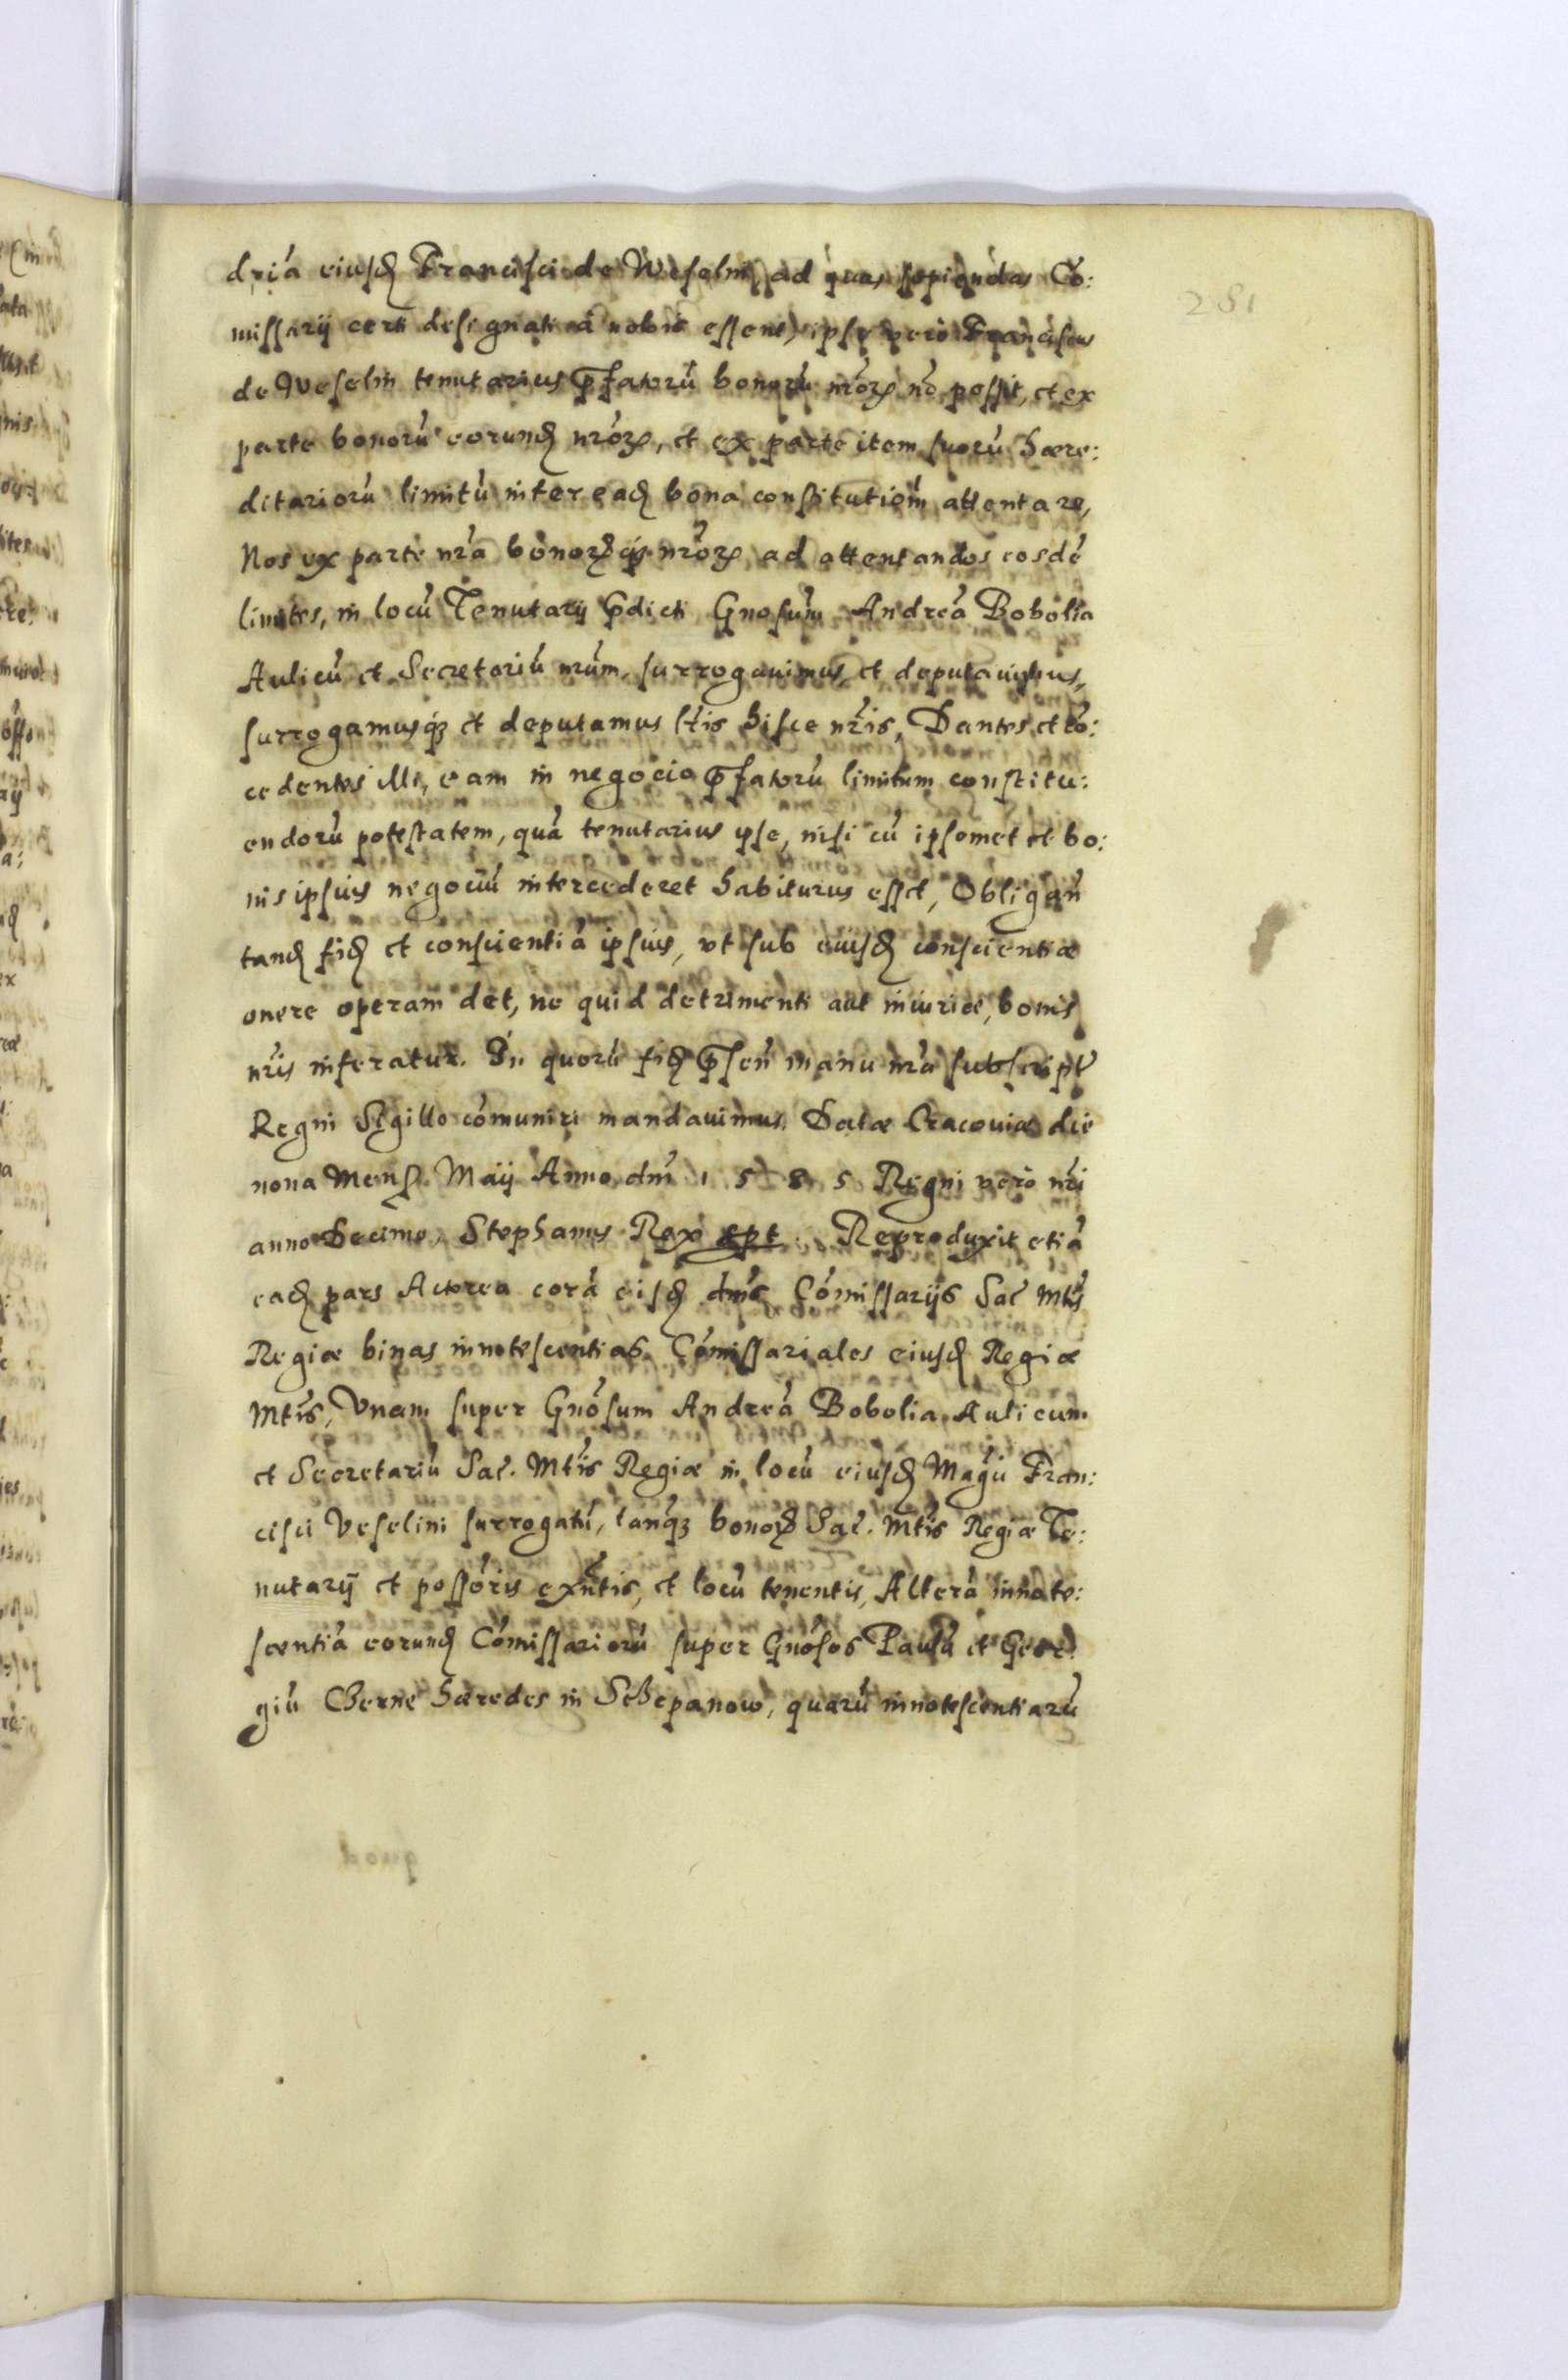 281
dria eiusđ Francisci de Weselin, ad quas sopiendas Co:
missarij certi designati à nobis essent, ipse vero Franciscus
de Weselin tenutarius p̄fatorū bonorū nr̄orꝫ nō possit, et ex
parte bonorū eorunđ nr̄orꝫ, et ex parte item suorū hære:
ditariorū limitū inter eađ bona constitutiōm attentare,
Nos ex parte nr̄a bonorꝫ qꝫ nr̄orꝫ ad attentandos eosdē
limites, in locū Tenutarij p̄dicti Gnosum̄ Andreā Bobolia
Aulicū et Secretariū nr̄um, surrogauimus, et deputauimus,
surrogamusqꝫ et deputamus lr̄is hisce nr̄is, Dantes et cō:
cedentes illi, eam in negocio p̄fatorū limitum constitu:
endorū potestatem, quā tenutarius ipse, nisi cū ipsomet et bo:
nis ipsius negociū intercederet habiturus esset, Obligan̄
tanđ fiđ et conscientiā ipsius, vt sub eiusđ conscientiæ
onere operam det, ne quid detrimenti aut iniuriæ, bonis
nr̄is inferatur. In quorū fiđ p̄sen̄ manu nr̄a subscript̄
Regni Sigillo cōmuniri mandauimus. Datæ Cracouiæ die
nona Mens. Maij Anno dn̄i 1585 Regni vero nr̄i
anno Decimo, Stephanus Rex spt. Reproduxit etiā
eađ pars Actorea corā eisđ dn̄is Cōmissarijs Sac̄ Mtis̄
Regiæ binas innotescentias Cōmissariales eiusđ Regiæ
Mtis̄, Vnam super Gnōsum Andreā Bobolia Aulicum
et Secretariū Sac̄. Mtis̄ Regiæ in locū eiusđ Magci̅ Fran:
cisci Veselini surrogatū, tanqꝫ bonorꝫ Sac̄. Mtis̄ Regiæ Te:
nutarij et possōris exn̄tis, et locū tenentis, Alterā innote:
scentiā eorunđ Cōmissariorū super Gnōsos Paulū et Geor:
giū Cherne hæredes in Schepanow, quarū innotescentiarū